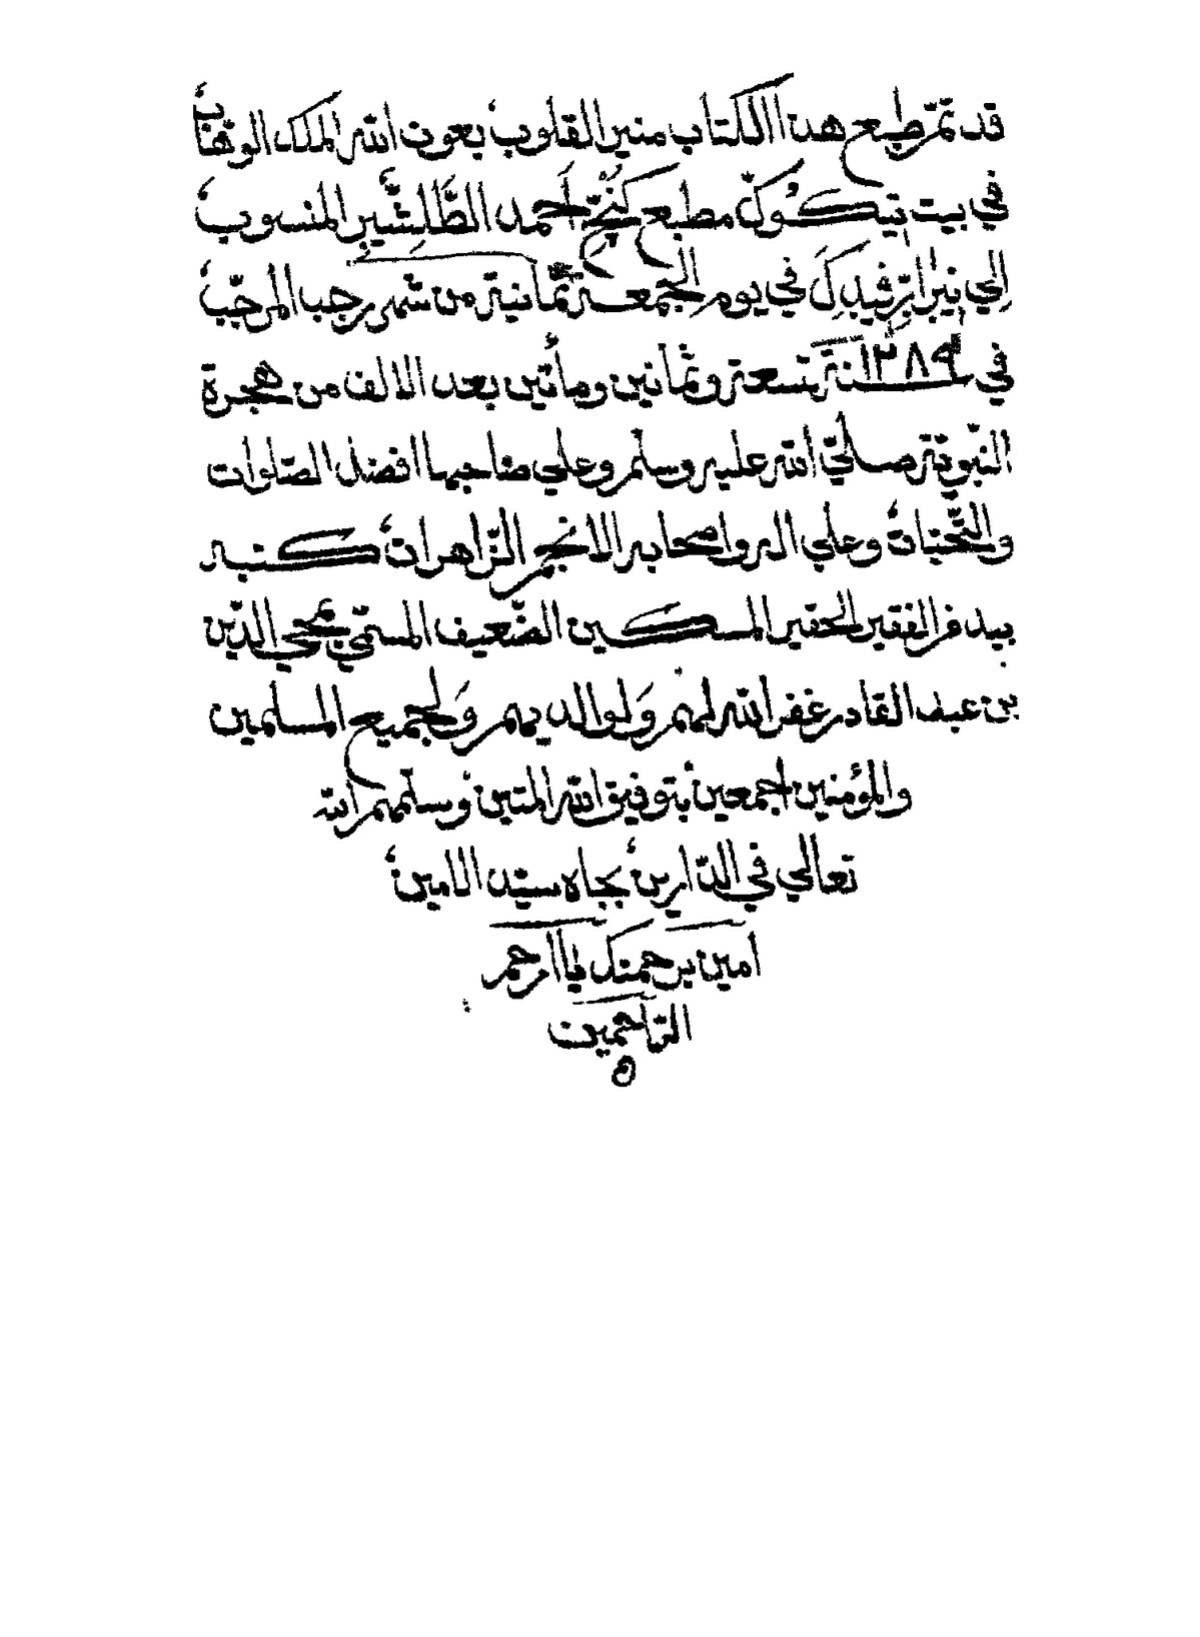 قد تمّ طبع هذا الكتاب منير القلوب بعون الله الملك الوهّاب
في بيت تيكوكل مطبع كنج أحمد الطّلشّيري المنسوب
إلي في يوم الجمعة ثمانية من شهر رجب المرجّب
في سنة ١٢٨٩ تسعة وثمانين ومأتين بعد الالف من هجرة
النّبويّة صلّي الله عليه وسلّم وعلي صاحبها افضل الصّلوات
والتّحيّات وعلي اله واصحابه الانجم الزّاهرات كتبه
بيده الفقير الحقير المسكين الضّعيف المسمّي بمحي الدّين
بن عبد القادر غفر الله لهم وَلوالديهم وَلجميع المسلمين
والمؤمنين اجمعين بتوفيق الله المتين وسلّمهم الله
تعالي في الدّارين بجاه سيّد الامين
امين برحمتك ياارحم
الرّاحمين